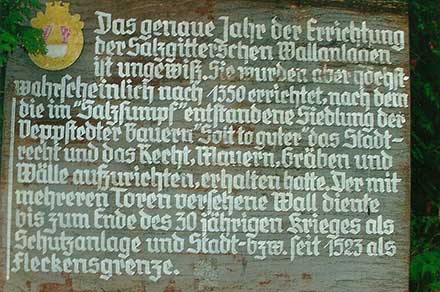 Das genaue Jahr der Errichtung
der Salzgitterschen Wallanlagen
ist ungewiß. Sie wurden aber höchst-
wahrscheinlich nach 1350 errichtet, nach dem
die im "Salzsumpf" entstandene Siedlung der
Veppstedter Bauern "Solt to guter" das Stadt-
recht und das Recht, Mauern, Gräben und
Wälle aufzurichten, erhalten hatte. Der mit
mehreren Toren versehene Wall diente
bis zum Ende des 30 jährigen Krieges als
Schutzanlage und Stadt- bzw. seit 1523 als
Fleckensgrenze.